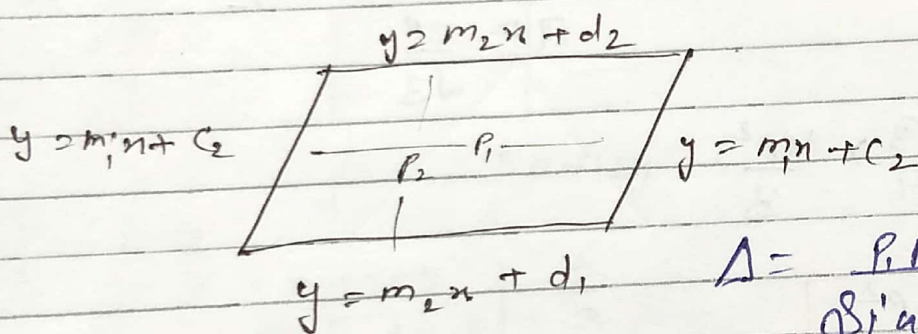 y = m₂x + d₂
y = m₁x + c₂
P₁
y = m₁x + c₂
P₂
y = m₂x + d₁
Δ = P₁